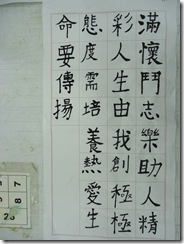 滿懷鬥志樂助人精
彩人生由我創積極
態度需培養熱愛生
命要傳揚